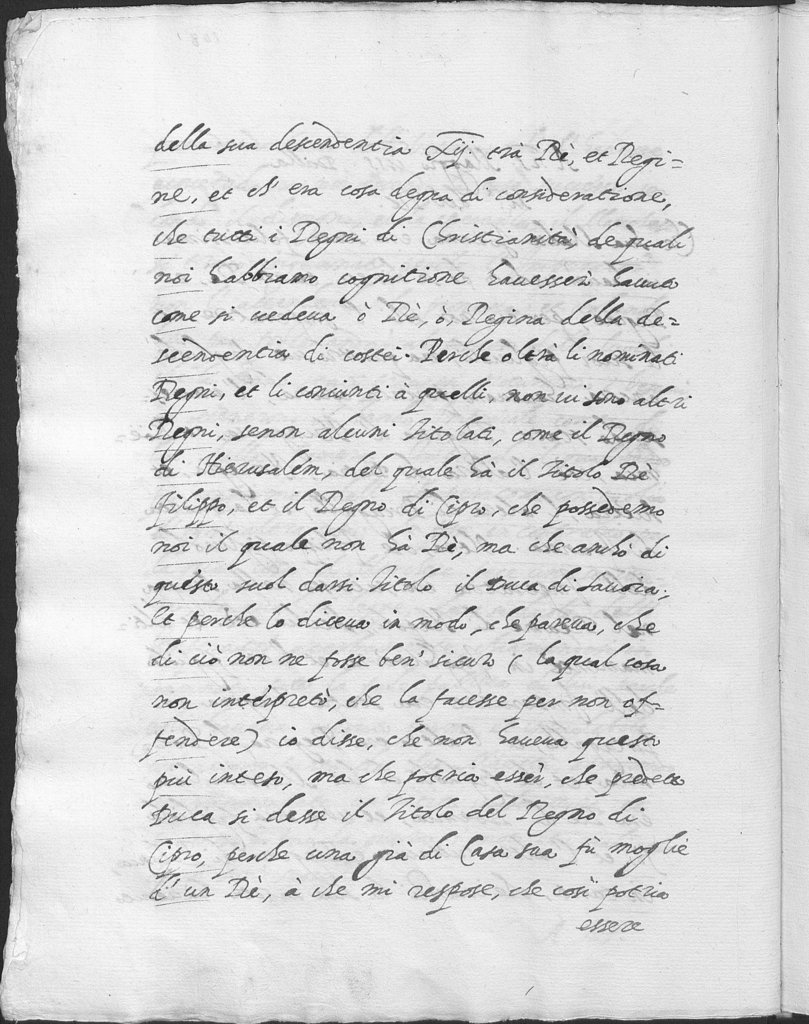 della sua descendentia Xij. trà Rè, et Regi=
ne, et ch' era cosa degna di consideratione,
che tutti i Regni di Christianità, de quali
noi habbiamo cognitione havessero havuto
come si vedeva ò Rè, ò, Regina della de=
scendentia di costei. Perche oltrà li nominati
Regni, et li conivnti à quelli, non vi sono altri
Regni, senon alcuni titolati, come il Regno
di Hierusalém, del quale hà il titolo Rè
filippo, et il Regno di Cipro, che possedemo
noi il quale non hà Rè, ma che anchò di
questo suol darsi titolo il Duca di Savoia;
Et perche lo diceva in modo, che pareva, che
di ciò non ne fosse ben' sicuro ( la qual cosa
non intérpretò, che la facesse per non of=
fendere) io disse, che non haveva questo
più inteso, ma che potria essér, che predetto
Duca si desse il titolo del Regno di
Cipro, perche una già di Casa sua fù moglie
d' un Rè, à che mi respose, che così potria
essere